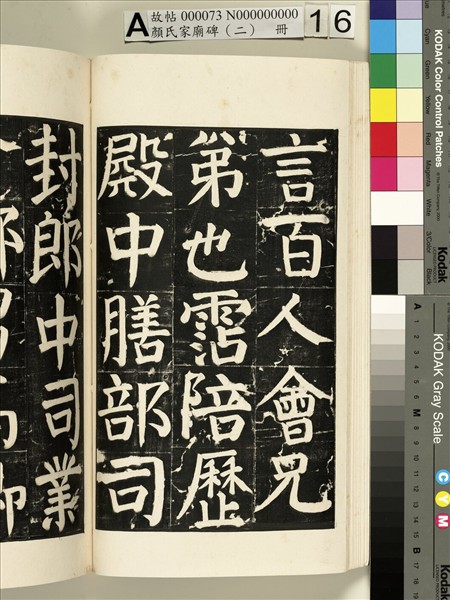 A 故帖 000073 N000000000 16
顏氏家廟碑（二） 冊
言百人會兄
弟也霑陪歷
殿中膳部司
封郎中司業
KODAK Color Control Patches
Cyan Green Yellow Red Magenta White 3/Color Black
Kodak
KODAK Gray Scale
A 1 2 3 4 5 6 M 8 9 10 11 12 13 14 15 B 17 18 19
C Y M
Kodak